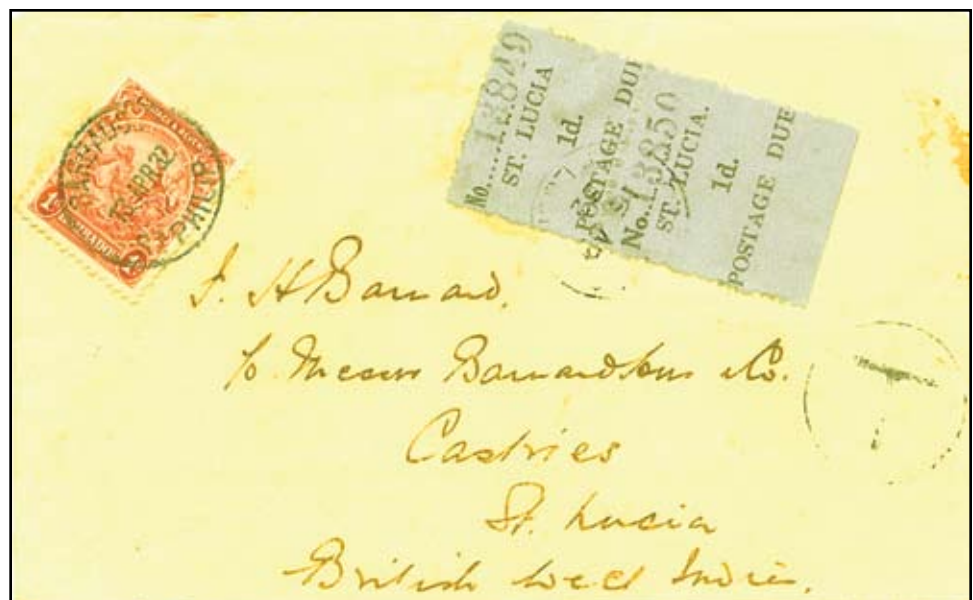 BARBADOS
ST. PHILIP
APR 32
BARBADOS
No. 13849
ST. LUCIA
1d.
POSTAGE DUE
No. 13850
ST. LUCIA.
1d.
POSTAGE DUE
T
J. H Barnard,
c/o Messrs Barnard Sons & Co.
Castries
St. Lucia
British West Indies.